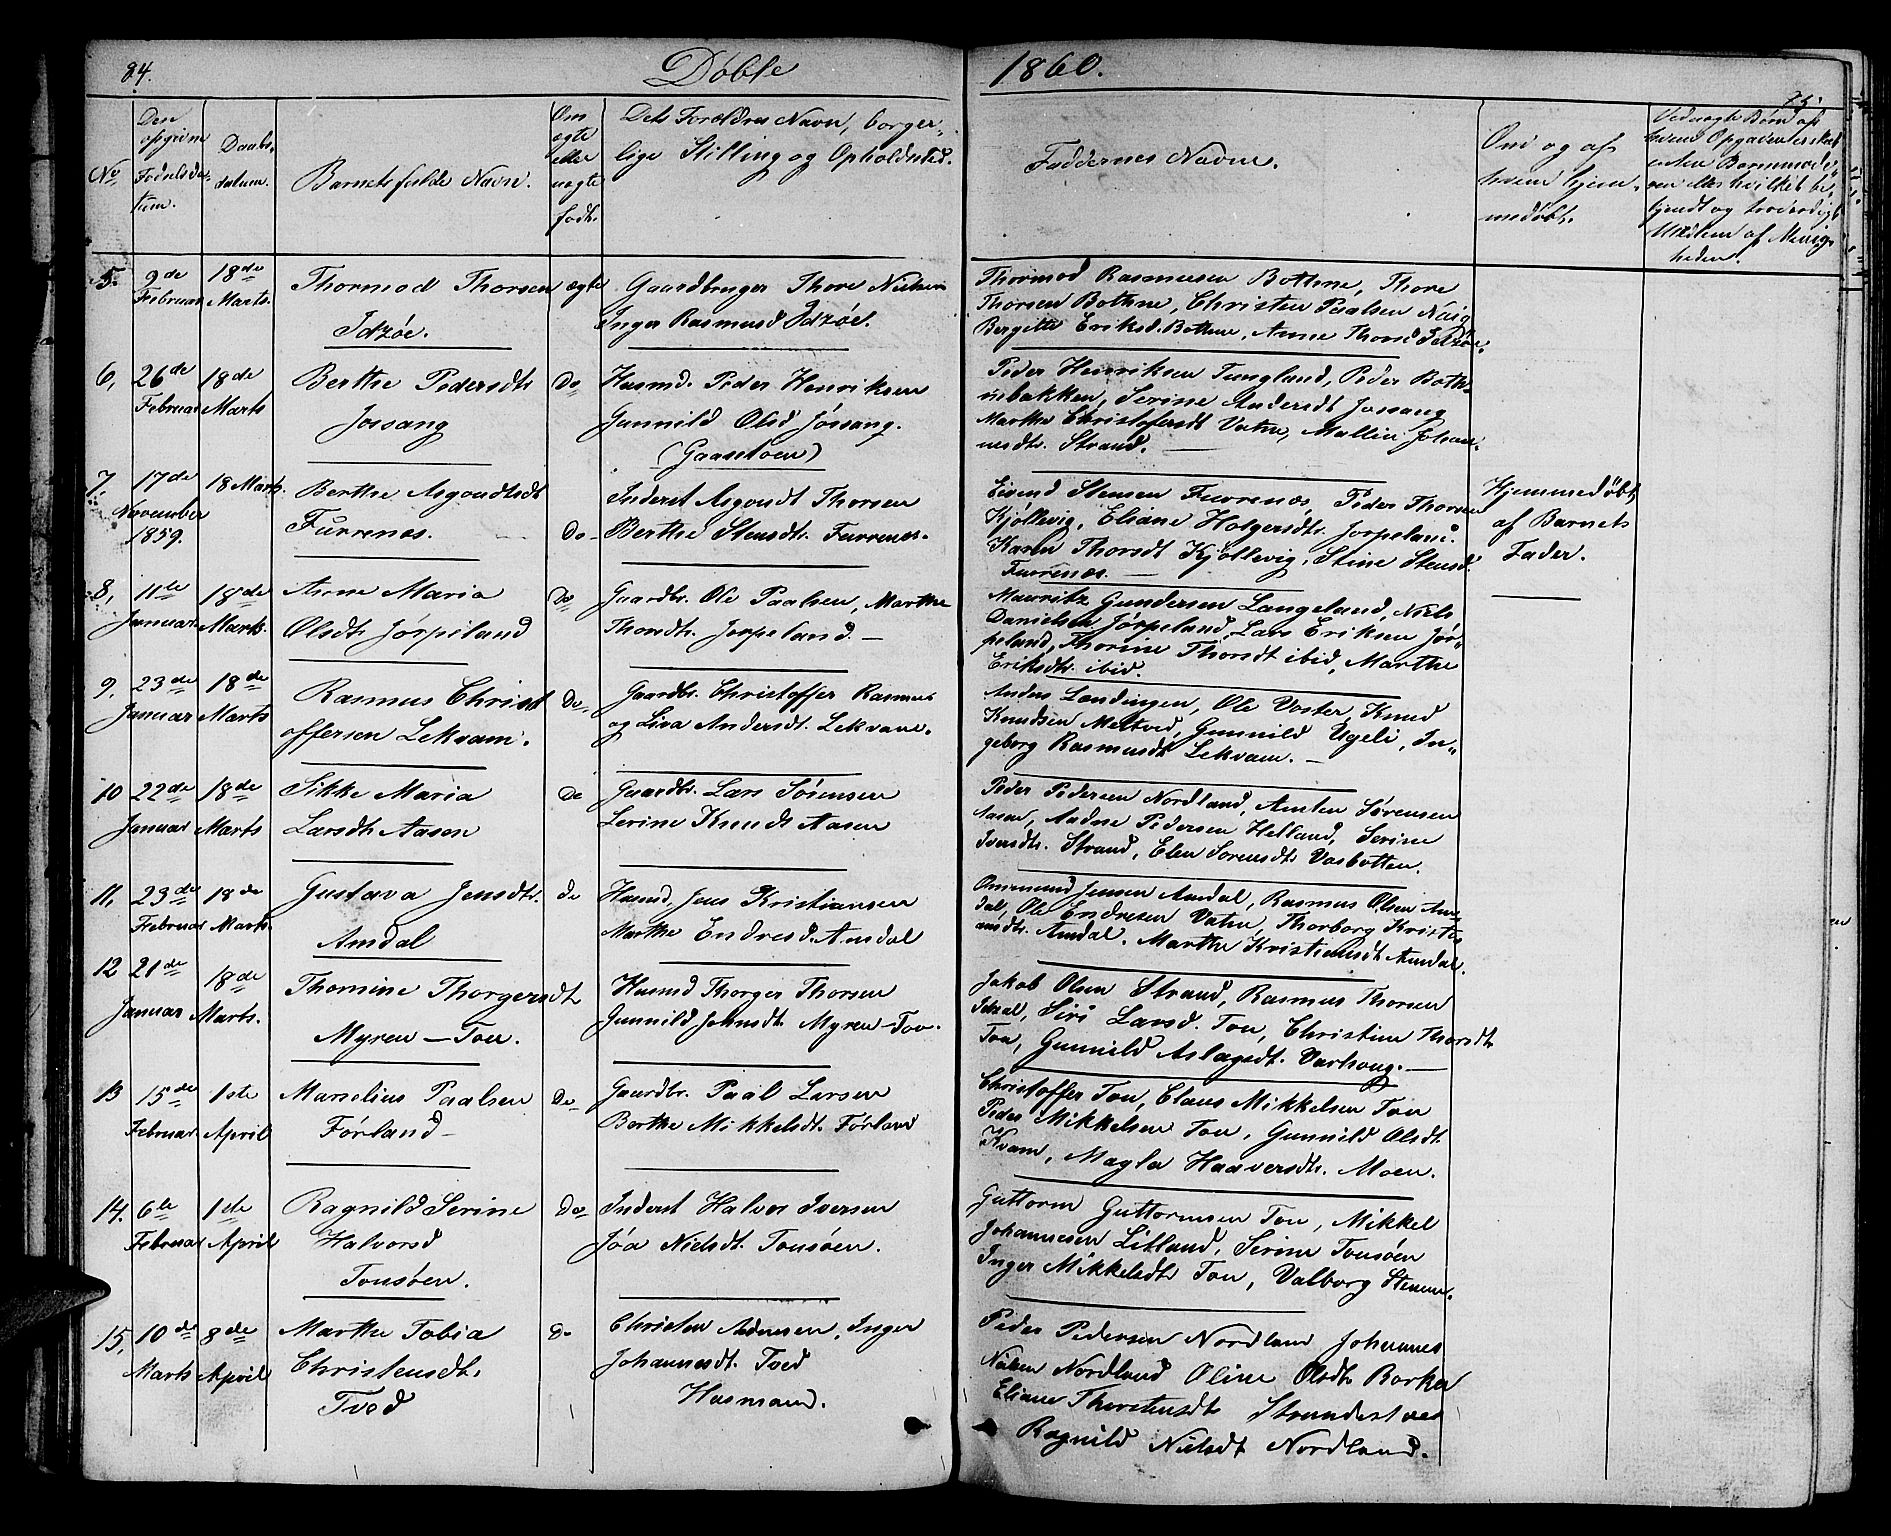 84.
Døbte
1860.
75.
No
Den opgivne Fødselsda-tum.
Daabs-datum.
Barnets fulde Navn.
Om ægte eller uægte født.
Dets Forældres Navn, borger-
lige Stilling og Opholdssted.
Faddernes Navne.
Om og af
hvem hjem-
medøbt.
5. 9de Februar 18de Marts
Thormod Thorsen
Idzøe.
ægte
Gaardbruger Thore Nielsen
Inger Rasmusd Idzøe.
Thormod Rasmusen Bothne, Thore
Thorsen Bothne, Christen Paalsen Næsg
Bergitte Eriksd. Bothne, Anne Thorsd Idzøe.
6, 26de Februar 18de Marts
Berthe Pedersdt
Jossang
Do
Husmd. Peder Henriksen
Gunnild Olsd Jøssang.
(Gaasetoen)
Peder Henriksen Tungland, Peder Both-
nebakken, Serine Andersdt Jossang
Marthe Christofersdt Vatne, Mallin Johan-
nesdt. Strand.
7. 17de November 1859. 18 Marts.
Berthe Asgoudtsdt
Furrenæs.
Do-
Inderst Asgoudt Thorsen
Berthe Stensdt. Furrenes.
Eivind Stensen Furrenæs, Peder Thorsen
Kjøllevig, Eliane Holgersdt. Jorpeland.
Karen Thorsdt Kjøllevig, Stine Stensd.
Furrenæs.
Hjemmedøbt
af Barnets
Fader.
8, 11te Januar 18de Marts.
Anne Maria
Olsdt. Jørpeland
Do
Gaardbr. Ole Paalsen, Marthe
Thorsdt. Jorpeland.
Mauritz Gundersen Langeland, Niels
Danielsen Jørpeland, Lars Eriksen Jør-
peland, Thorine Thorsdt ibid, Marthe
Eriksdt. ibid.
9, 23de Januar 18de Marts
Rasmus Christ
offersen Lekvam.
Do-
Gaardbr. Christoffer Rasmus
og Liva Andersdt. Lekvam.
Anders Landingen, Ole Voster, Knud
Knudsen Meltved, Gunnild Ugeli, In-
geborg Rasmusdt Lekvam.
10 22de Januar 18de Marts
Sikke Maria
Larsdt. Aasen
Do
Gaardbr. Lars Sørensen
Serine Knudsdt Aasen
Peder Pedersen Nordland, Amten Sørensen
Aasen, Andne Pedersen Helland, Serine
Iversdt. Strand, Elen Sorensdt. Vasbotten.
11, 23de Februar 18de Marts.
Gustava Jensdt.
Amdal
do
Husmd. Jens Kristiansen
Marthe Endresd. Amdal
Ommund Jensen Amdal, Rasmus Olsen Am-
dal, Ole Endresen Vatne, Thorborg Kristi-
ansdt. Amdal. Marthe Kristiansdt Amdal.
12 21de Januar 18de Marts.
Thomine Thorgersdt
Myren - Tou.
Husmd Thorger Thorsen
Gunnild Johnsdt. Myren-Tou.
Jakob Olsen Strand, Rasmus Thorsen
Idsal, Siri Larsd. Tou, Christine Thorsdt
Tou, Gunnild Aslagsdt. Varhoug.
13 15de Februar 1ste April
Marselius Paalsen
Førland-
Do-
Gaardbr. Paal Larsen
Berthe Mikkelsdt. Førland
Christoffer Tou, Claus Mikkelsen Tou
Peder Mikkelsen Tou, Gunnild Olsdt.
Kvam, Magla Haaversdt. Moen.
14. 6te Februar 1ste April
Ragnild Serine
Halvorsd
Tousøen.
Do-
Inderst Halvor Iversen
Jóa Nielsdt. Tousøen.
Guttorm Guttormsen Tou, Mikkel
Johannesen Litland, Serine Tousøen
Inger Mikkelsdt. Tou, Valborg Stenun.
15, 10de Marts 8de April
Marthe Tobia
Christensdt.
Tved
Do
Christen Adnesen, Inger
Johannesdt. Tved
Husmand.
Peder Pedersen Nordland Johannes
Nielsen Nordland Oline Olsdt. Barka
Eliane Thorstensdt Strandestøed
Ragnild Nielsdt Nordland.